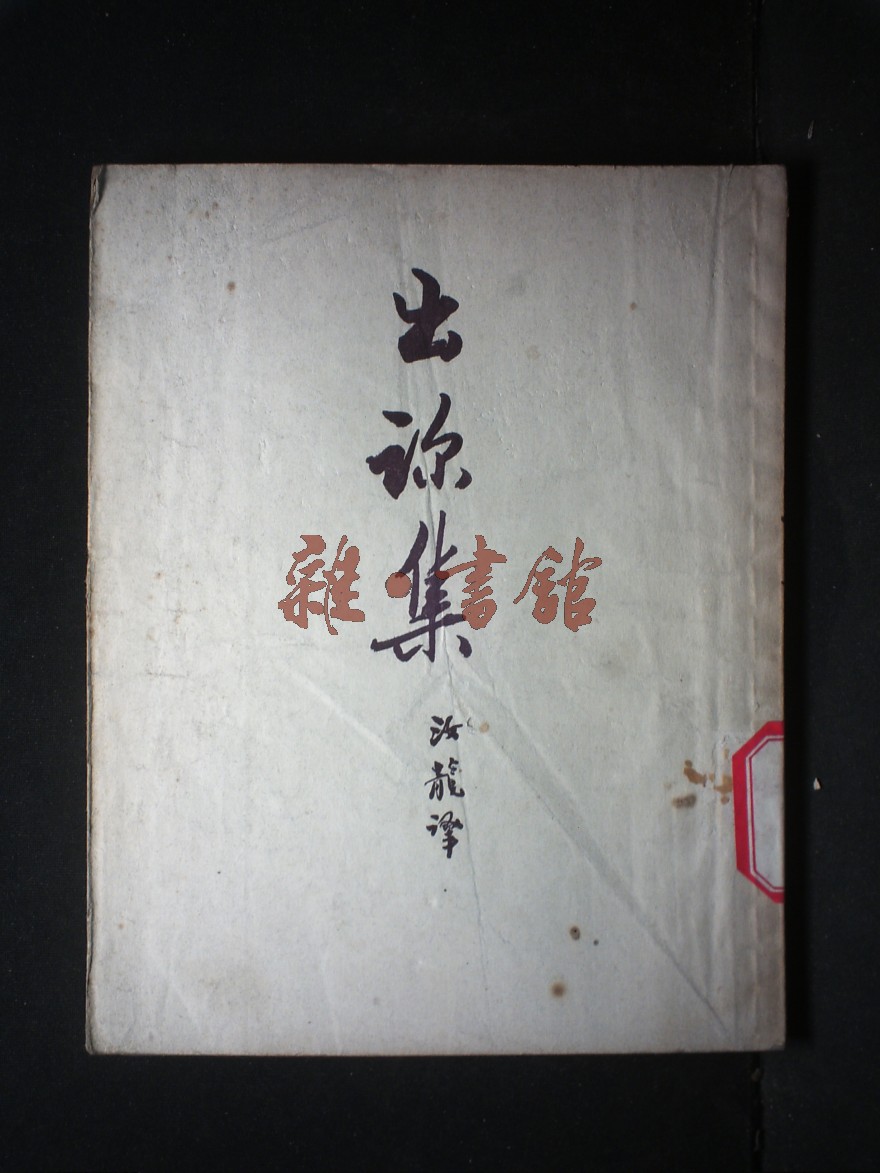 出診集
雜·書館
汝龍譯